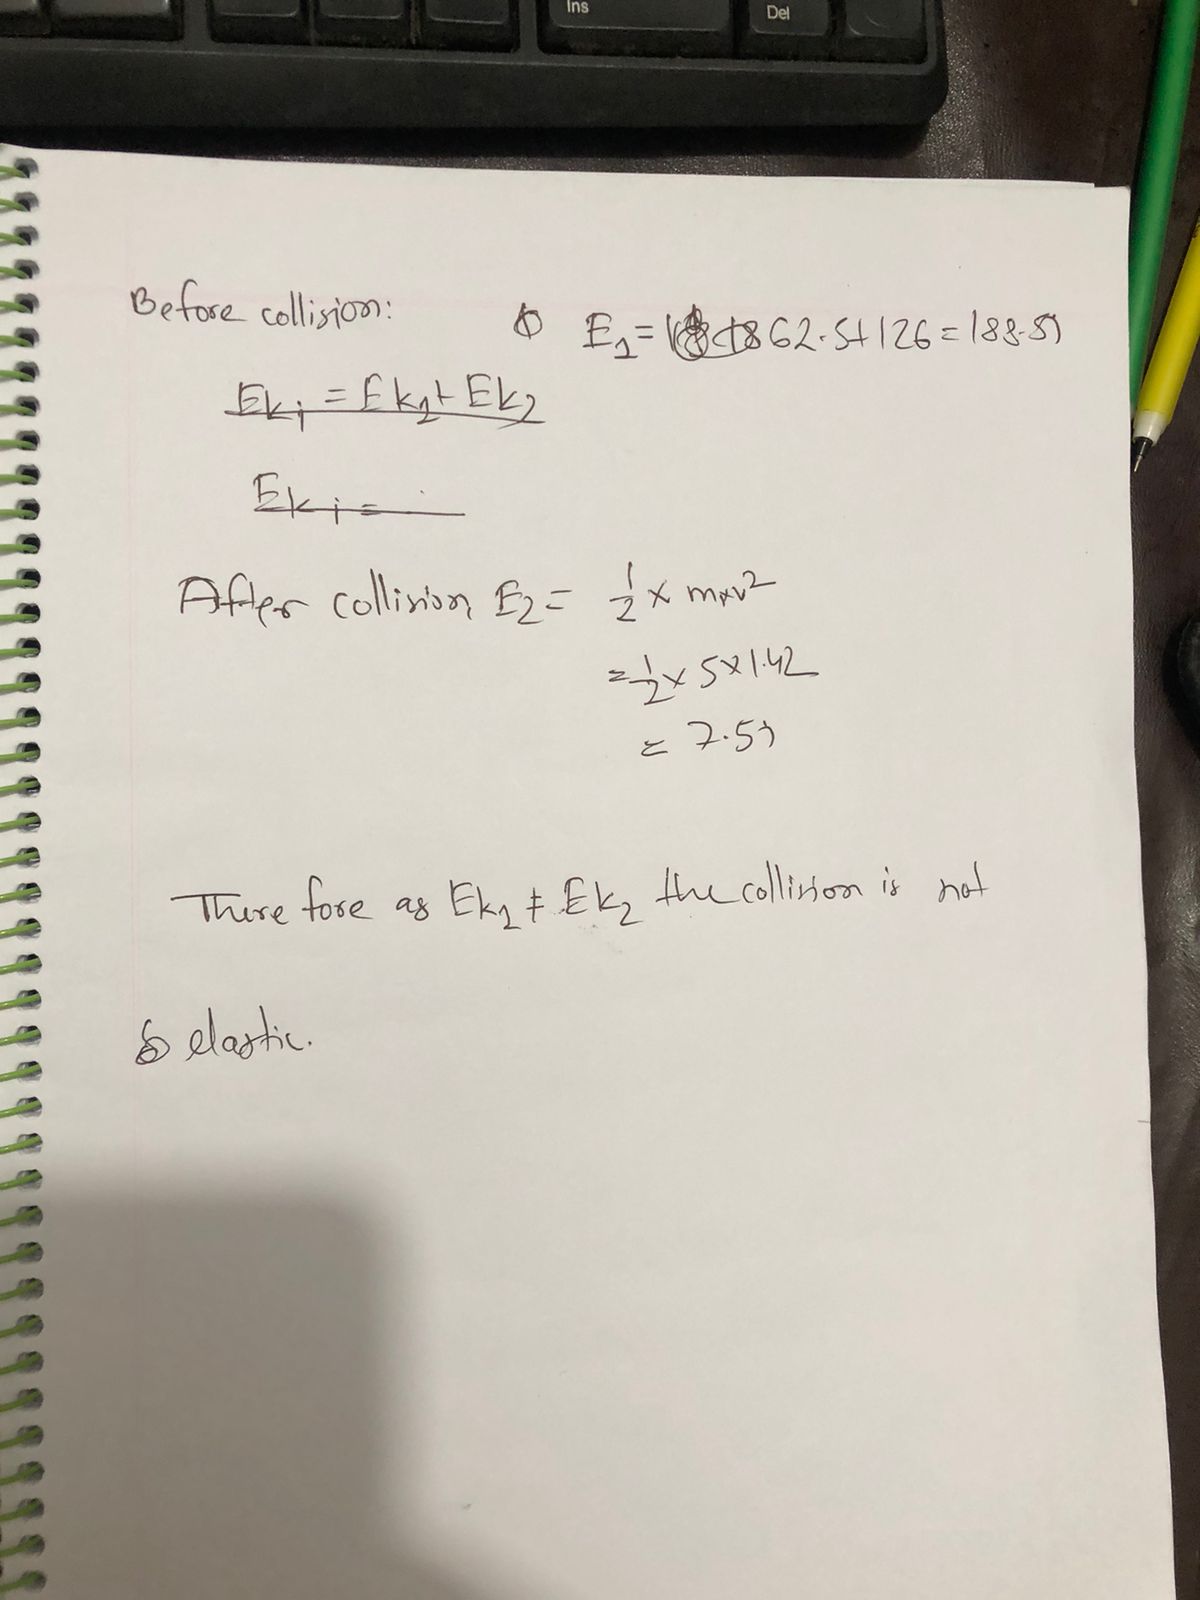 Ins
Del
Before collision:
E1 = 62.5+126 = 188.5J
Eki = Ek1+Ek2
Eki =
After collision E2 = 1/2 x mxv2
= 1/2 x 5x1.42
= 7.5J
There fore as Ek1 ≠ Ek2 the collision is not
elastic.